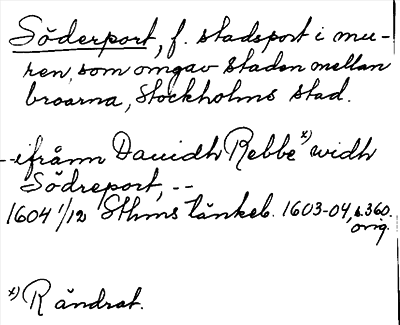 Söderport, f. stadsport i mu-
ren, som omgav staden mellan
broarna, Stockholms stad.
--ifrånn Dauidh Rebbe x) widh
Södreport, --
1604 1/12 Sthms tänkeb. 1603-04, s. 360.
orig.
x) R ändrat.